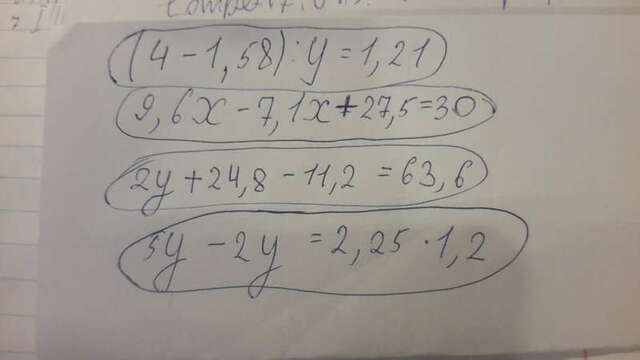 (4 - 1,58) : y = 1,21
9,6x - 7,1x + 27,5 = 30
2y + 24,8 - 11,2 = 63,6
5y - 2y = 2,25 · 1,2